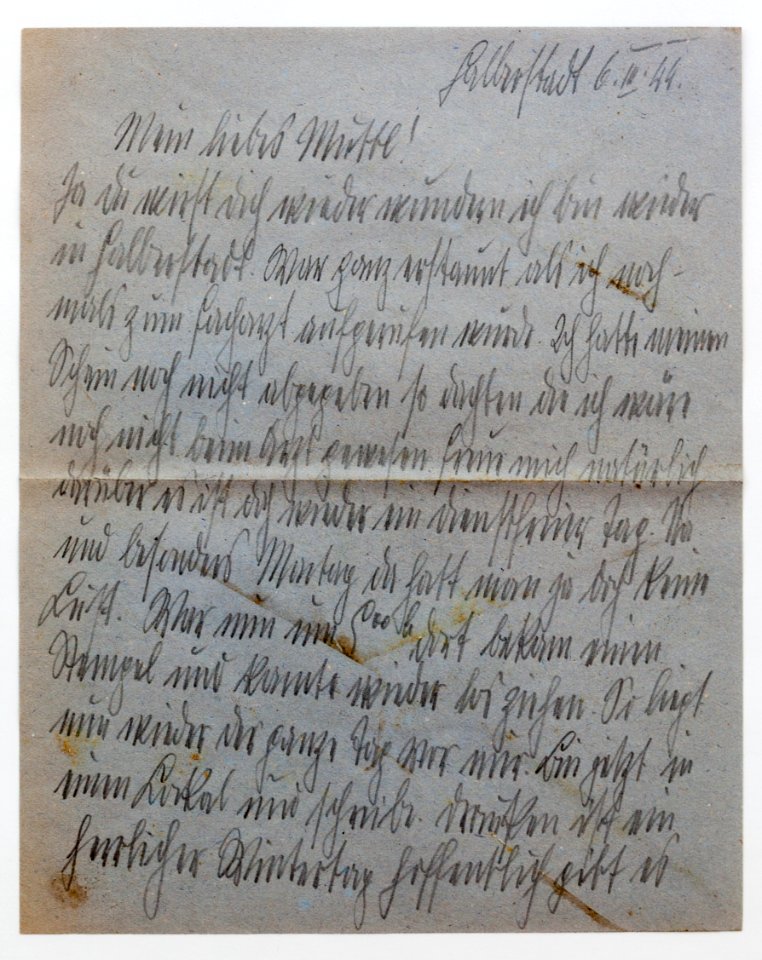 Halberstadt 6.III.44.
Mein liebes Muttl!
Ja du wirst dich wieder wundern ich bin wieder
in Halberstadt. War ganz erstaunt als ich noch-
mals zum Facharzt aufgerufen wurde. Ich hatte meinen
Schein noch nicht abgegeben so dachten die ich wäre
noch nicht beim Arzt gewesen. Freue mich natürlich
darüber es ist doch wieder ein dienstfreier Tag. Na
und besonders Montag da hatt man ja doch keine
Lust. War nun um dort bekam einen
Stempel und kannte wieder los ziehen. So liegt
nun wieder der ganze Tag vor mir. Bin jetzt in
einem Lokal und schreibe. Draußen ist ein
herrlicher Wintertag hoffentlich gibt es